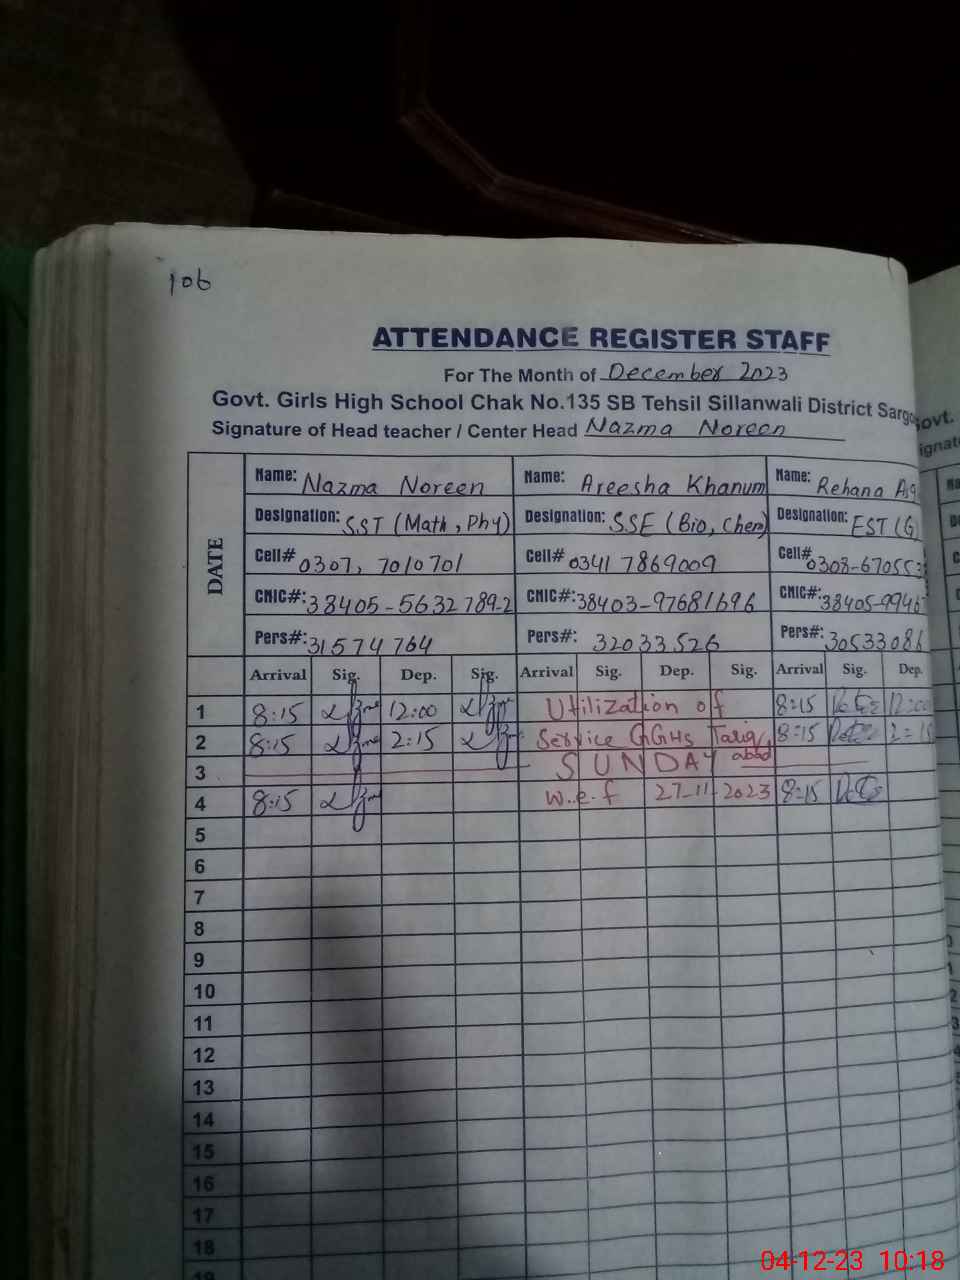 106
ATTENDANCE REGISTER STAFF
For The Month of December 2023
Govt. Girls High School Chak No.135 SB Tehsil Sillanwali District Sargo
Signature of Head teacher / Center Head Nazma Noreen
DATE
Name: Nazma Noreen Name: Areesha Khanum Name: Rehana
Designation: SST (Math, Phy) Designation: SSE (Bio, Chem) Designation: EST (G)
Cell# 0307, 7010701 Cell# 0341 7869009 Cell# 0308-67055
CNIC#: 38405-5632789-2 CNIC#: 38403-97681696 CNIC#: 38405-9946
Pers#: 31574764 Pers#: 32033526 Pers#: 30533086
Arrival Sig. Dep. Sig. Arrival Sig. Dep. Sig. Arrival Sig. Dep.
1 8:15 12:00 Utilization of 8:15 12:00
2 8:15 2:15 Service GGHS Tariq abad 8:15 2:15
3 SUNDAY
4 8:15 w.e.f 27-11-2023 8:15
5
6
7
8
9
10
11
12
13
14
15
16
17
18
19
04-12-23 10:18